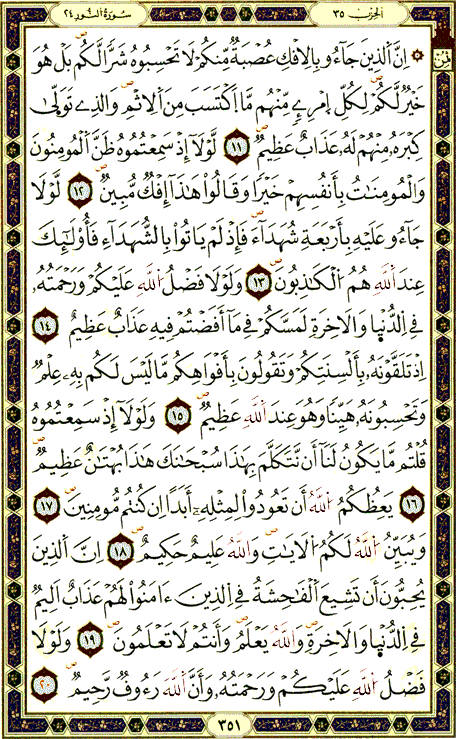 الحزب ٣٥
سورة النور ٢٤
۞ إِنَّ اَ۬لذِينَ جَآءُو بِالِافْكِ عُصْبَةٌ مِّنكُمْ لَا تَحْسِبُوهُ شَرّاً لَّكُم بَلْ هُوَ
خَيْرٌ لَّكُمْ لِكُلِّ اِ۪مْرِےٕ مِّنْهُم مَّا اَ۪كْتَسَبَ مِنَ اَ۬لِاثْمِ وَالذِے تَوَلّ۪يٰ
كِبْرَهُۥ مِنْهُمْ لَهُۥ عَذَابٌ عَظِيمٌ ١١ لَّوْلَآ إِذْ سَمِعْتُمُوهُ ظَنَّ اَ۬لْمُومِنُونَ
وَالْمُومِنَٰتُ بِأَنفُسِهِمْ خَيْراً وَقَالُواْ هَٰذَآ إِفْكٌ مُّبِينٌ ١٢ لَّوْلَا
جَآءُو عَلَيْهِ بِأَرْبَعَةِ شُهَدَآءَ فَإِذْ لَمْ يَاتُواْ بِالشُّهَدَآءِ فَأُوْلَٰٓئِكَ
عِندَ اَ۬للَّهِ هُمُ اُ۬لْكَٰذِبُونَ ١٣ وَلَوْلَا فَضْلُ اُ۬للَّهِ عَلَيْكُمْ وَرَحْمَتُهُۥ
فِے اِ۬لدُّنْي۪ا وَالَاخِرَةِ لَمَسَّكُمْ فِے مَآ أَفَضْتُمْ فِيهِ عَذَابٌ عَظِيمٌ ١٤
اِذْ تَلَقَّوْنَهُۥ بِأَلْسِنَتِكُمْ وَتَقُولُونَ بِأَفْوَاهِكُم مَّا لَيْسَ لَكُم بِهِۦ عِلْمٌ
وَتَحْسِبُونَهُۥ هَيِّناً وَهُوَ عِندَ اَ۬للَّهِ عَظِيمٌ ١٥ وَلَوْلَآ إِذْ سَمِعْتُمُوهُ
قُلْتُم مَّا يَكُونُ لَنَآ أَن نَّتَكَلَّمَ بِهَٰذَا سُبْحَٰنَكَ هَٰذَا بُهْتَٰنٌ عَظِيمٌ
١٦ يَعِظُكُمُ اُ۬للَّهُ أَن تَعُودُواْ لِمِثْلِهِۦٓ أَبَداً اِن كُنتُم مُّومِنِينَ ١٧
وَيُبَيِّنُ اُ۬للَّهُ لَكُمُ اُ۬لَايَٰتِ وَاللَّهُ عَلِيمٌ حَكِيمٌ ١٨ اِنَّ اَ۬لذِينَ
يُحِبُّونَ أَن تَشِيعَ اَ۬لْفَٰحِشَةُ فِے اِ۬لذِينَ ءَامَنُواْ لَهُمْ عَذَابٌ اَلِيمٌ
فِے اِ۬لدُّنْي۪ا وَالَاخِرَةِ وَاللَّهُ يَعْلَمُ وَأَنتُمْ لَا تَعْلَمُونَ ١٩ وَلَوْلَا
فَضْلُ اُ۬للَّهِ عَلَيْكُمْ وَرَحْمَتُهُۥ وَأَنَّ اَ۬للَّهَ رَءُوفٌ رَّحِيمٌ ٢٠
٣٥١